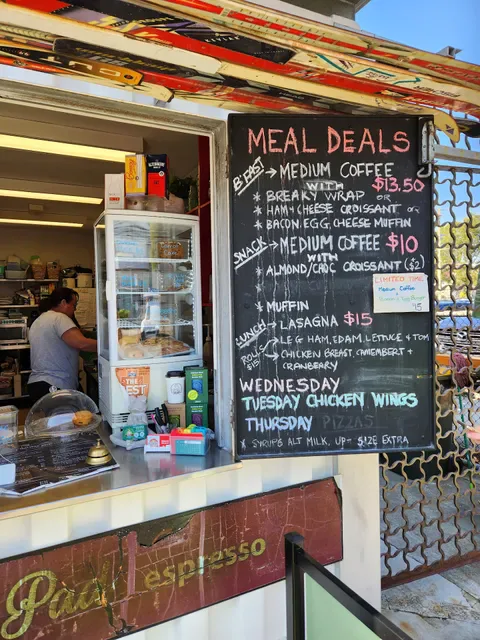 MEAL DEALS
B'FAST → MEDIUM COFFEE
WITH $13.50
* BREAKY WRAP OR
* HAM & CHEESE CROISSANT OR
* BACON, EGG, CHEESE MUFFIN
SNACK → MEDIUM COFFEE $10
WITH
* ALMOND/CHOC CROISSANT (+$2)
LIMITED TIME
Medium Coffee
* MUFFIN
LUNCH → LASAGNA $15
ROLLS $15 → LEG HAM, EDAM, LETTUCE + TOM
→ CHICKEN BREAST, CAMEMBERT +
CRANBERRY
WEDNESDAY
TUESDAY CHICKEN WINGS
THURSDAY PIZZAS
* SYRUPS ALT MILK, UP- $1.20 EXTRA
THE BEST
espresso